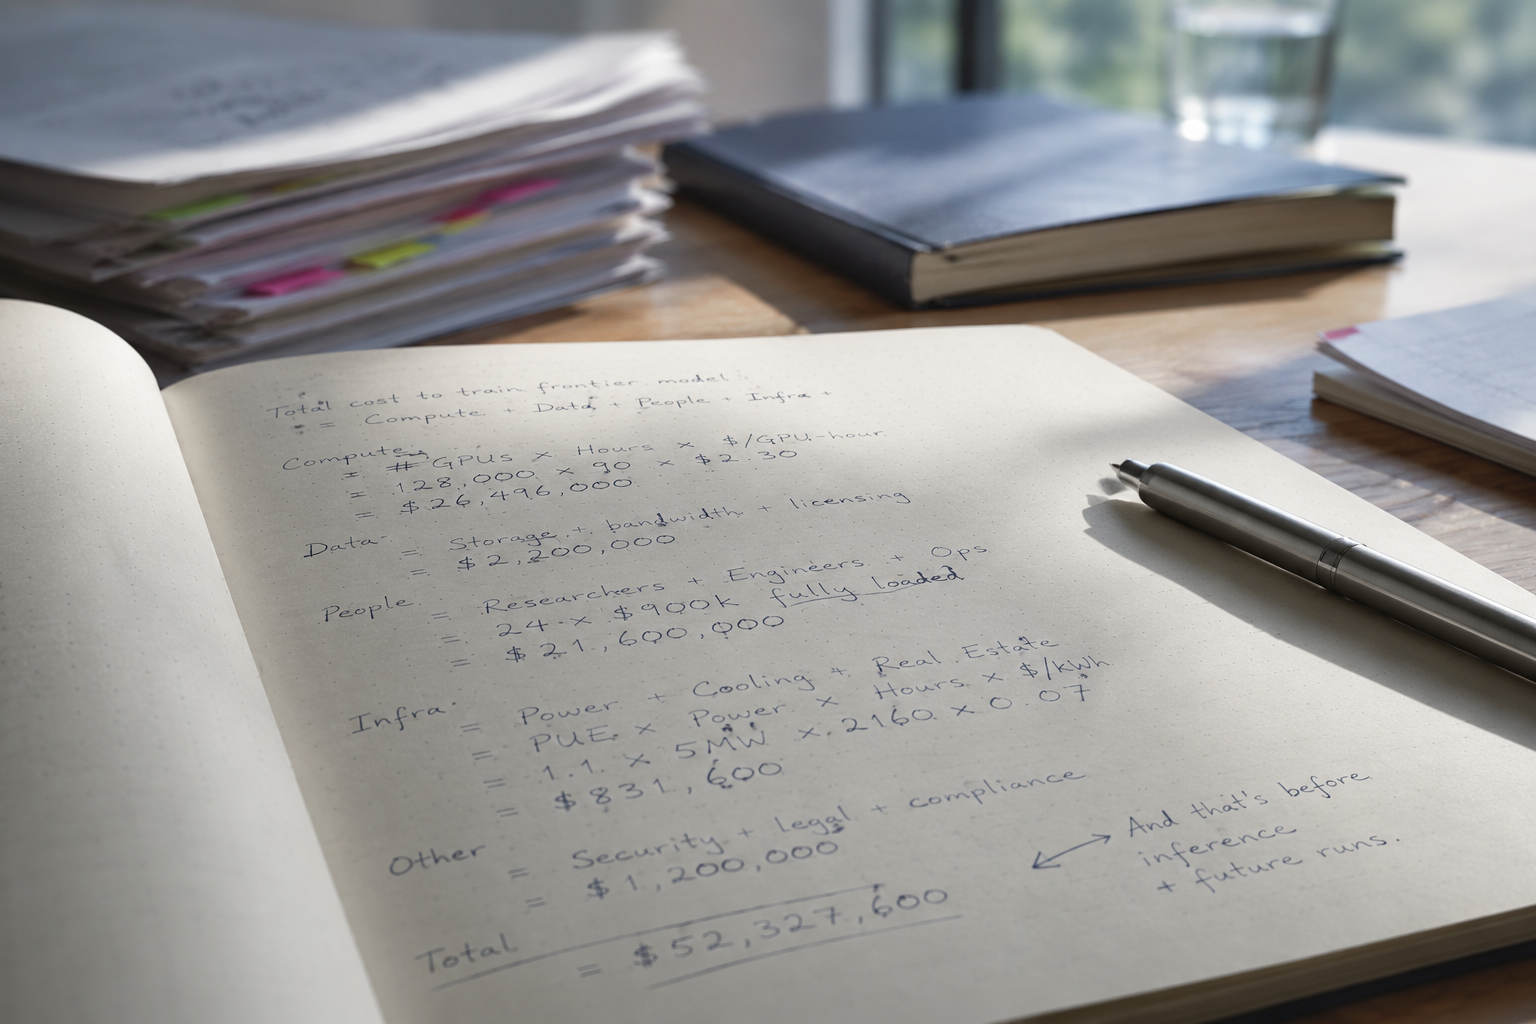 Total cost to train frontier model:
= Compute + Data + People + Infra +
Compute
= # GPUs × Hours × $/GPU-hour
= 128,000 × 90 × $2.30
= $26,496,000
Data = Storage + bandwidth + licensing
= $2,200,000
People = Researchers + Engineers + Ops
= 24 × $900k fully loaded
= $21,600,000
Infra = Power + Cooling + Real Estate
= PUE × Power × Hours × $/kWh
= 1.1 × 5MW × 2160 × 0.07
= $831,600
Other = Security + legal + compliance
= $1,200,000
Total = $52,327,600
And that's before
inference
+ future runs.